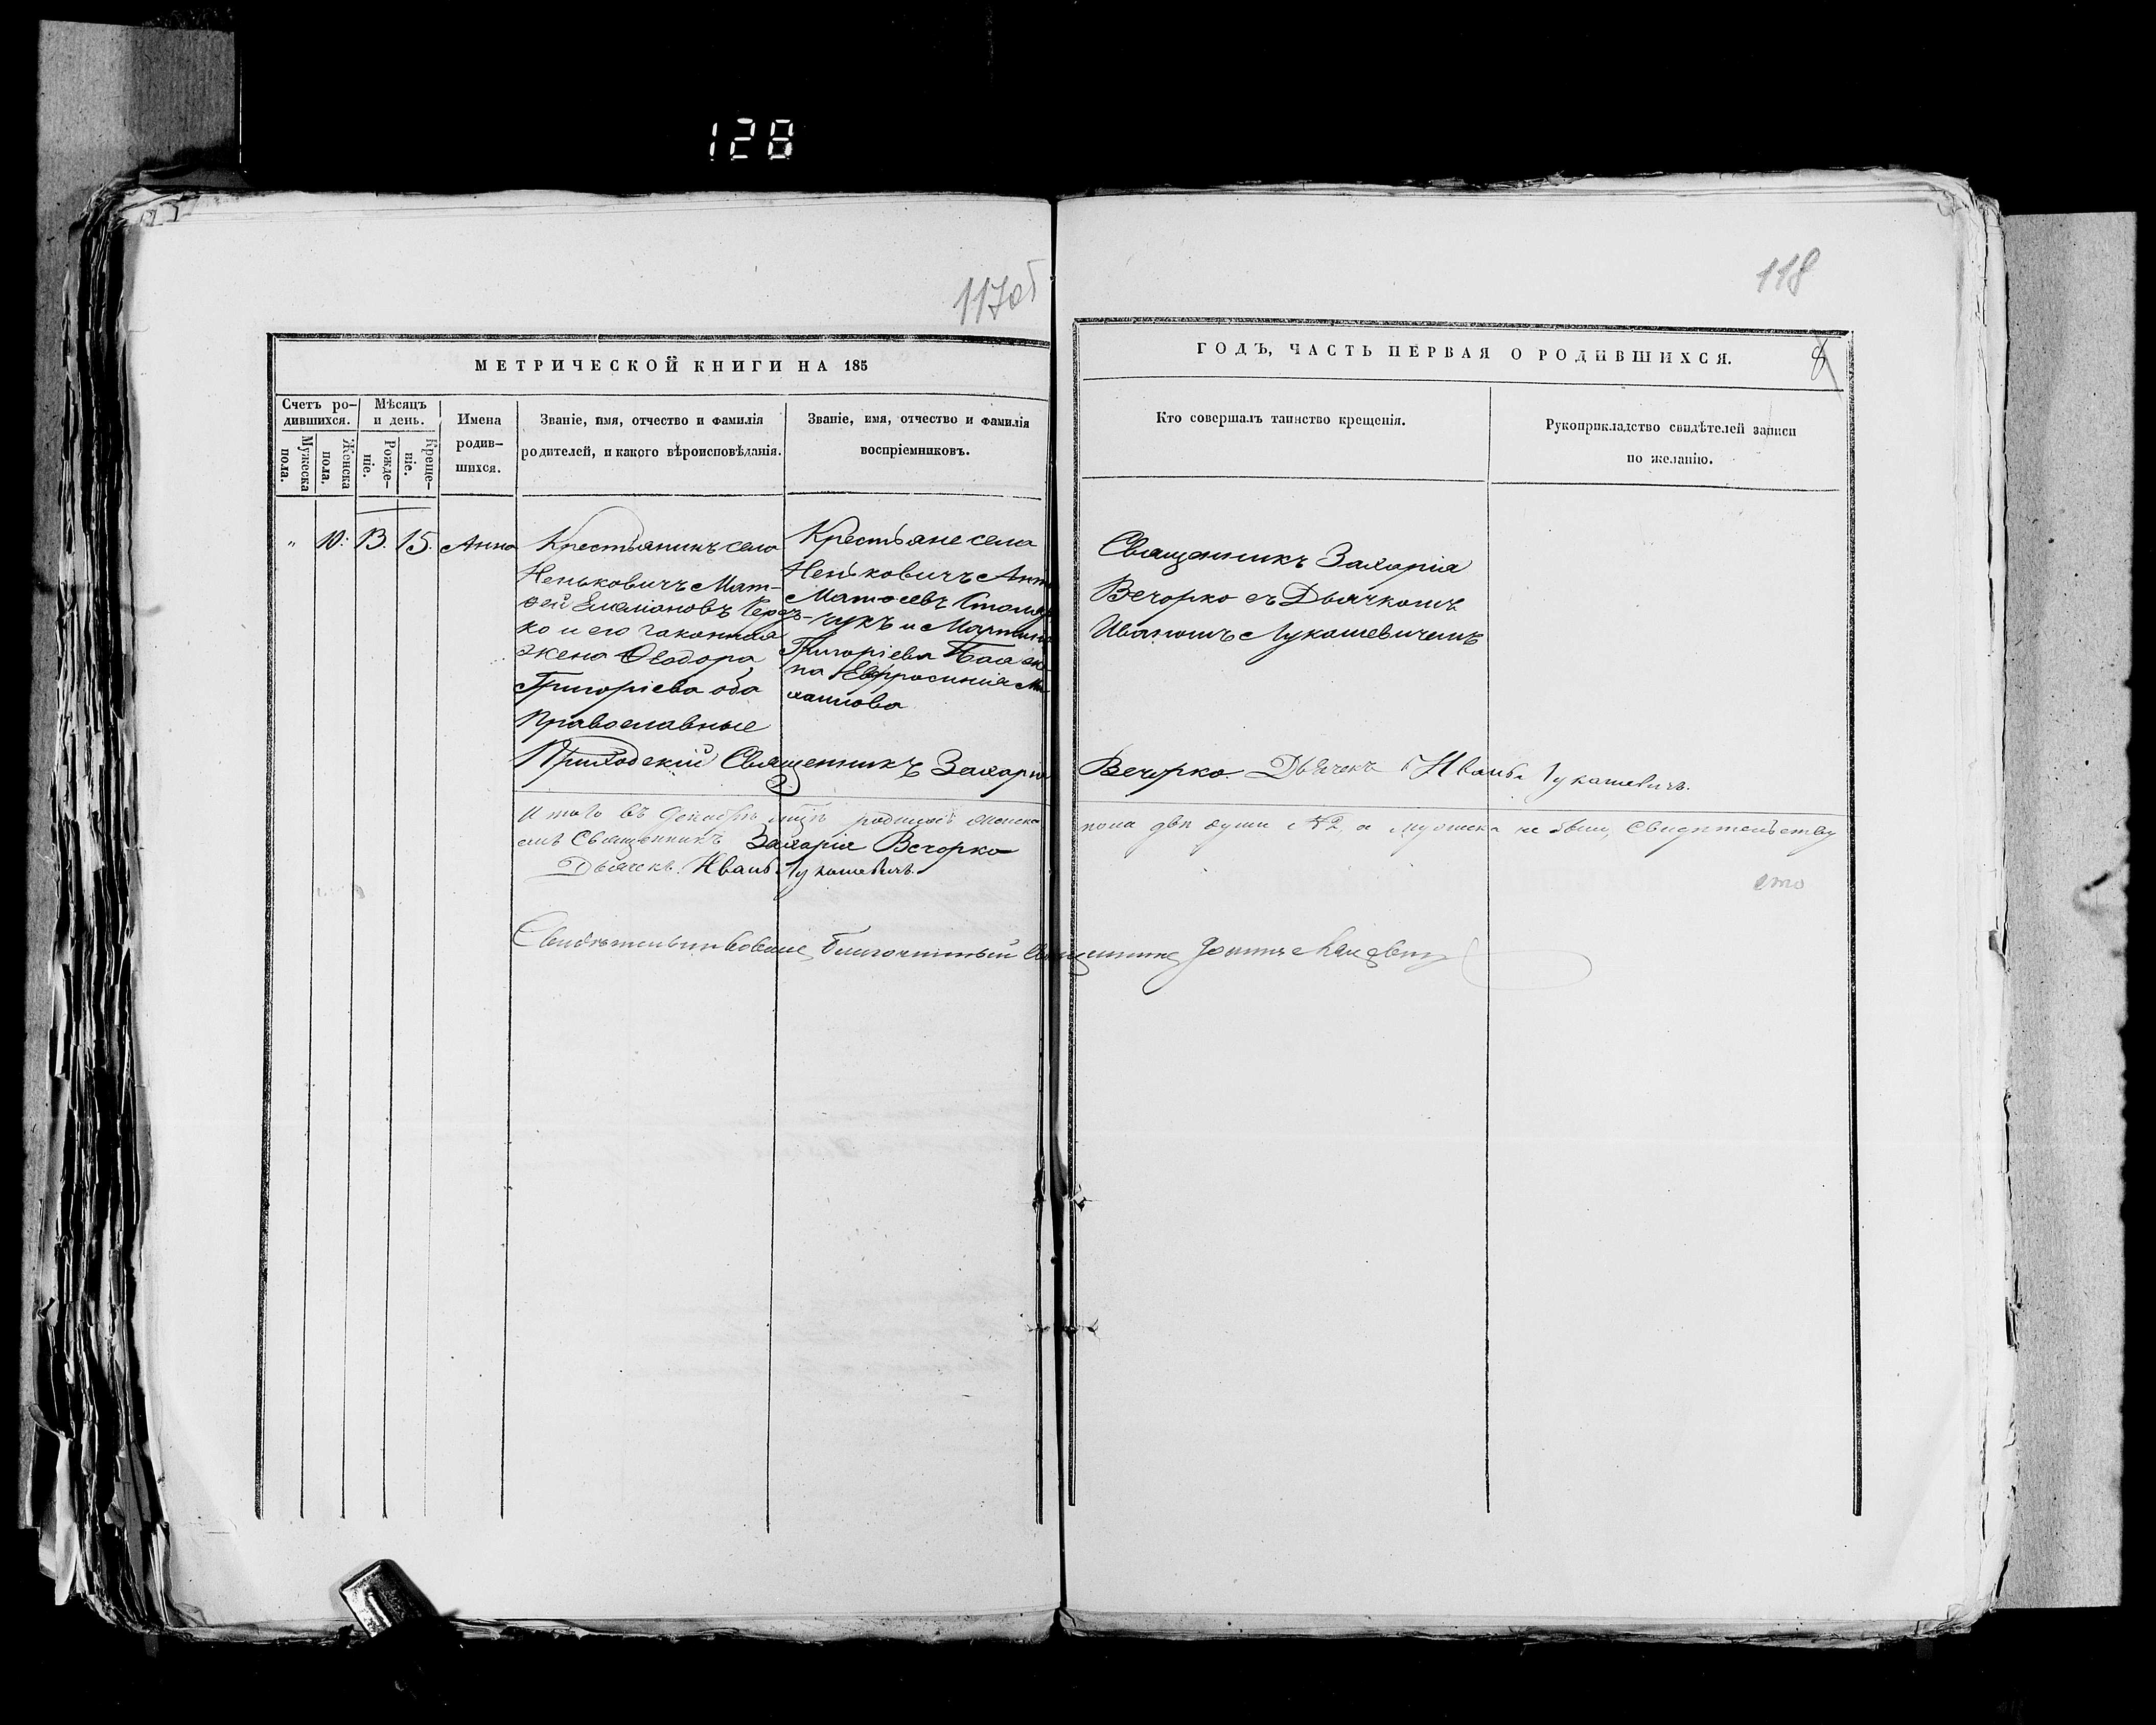 128
117об
118
МЕТРИЧЕСКОЙ КНИГИ НА 185
ГОДЪ, ЧАСТЬ ПЕРВАЯ О РОДИВШИХСЯ.
8
Счетъ ро-
дившихся.
Мужеска
пола.
Женска
пола.
Мѣсяцъ
и день.
Рожде-
ніе.
Креще-
ніе.
Имена
родив-
шихся.
Званіе, имя, отчество и фамилія
родителей, и какого вѣроисповѣданія.
Званіе, имя, отчество и фамилія
воспріемниковъ.
Кто совершалъ таинство крещенія.
Рукоприкладство свидѣтелей записи
по желанію.
" 10: 13. 15. Анна
Крестьянинъ села
Неньковичъ Мат-
ѳей Емеліановъ
ко и его законная
жена Ѳеодора
Григоріева оба
Православные
Крестьяне села
Неньковичъ
Матѳеевъ
чукъ и
Григоріева
на Евфросинія Ми-
хаилова
Священникъ Захарія
Вечорко съ Дьячкомъ
Иваномъ Лукашевичемъ
Приходскій Священникъ Захарія Вечорко Дьячекъ Иванъ Лукашевичъ.
Итого въ Декабрѣ родилось женска пола двѣ души №2, а мужеска не было, Свидѣтельству
емъ Священникъ Захарія Вечорко
Дьячекъ Иванъ Лукашевичъ.
Свидѣтельствовалъ Благочинный Священникъ